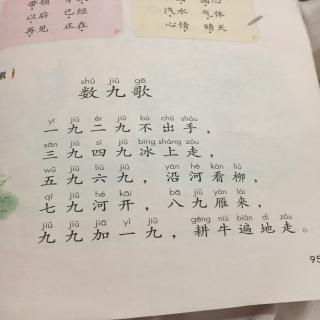 带领 自己 圆心
以后 已经 汽水 气体
再见 正在 心情 晴天
shǔ jiǔ gē
数九歌
yī jiǔ èr jiǔ bù chū shǒu
一九二九不出手，
sān jiǔ sì jiǔ bīng shàng zǒu
三九四九冰上走，
wǔ jiǔ liù jiǔ yán hé kàn liǔ
五九六九，沿河看柳，
qī jiǔ hé kāi bā jiǔ yàn lái
七九河开，八九雁来，
jiǔ jiǔ jiā yì jiǔ gēng niú biàn dì zǒu
九九加一九，耕牛遍地走。
95